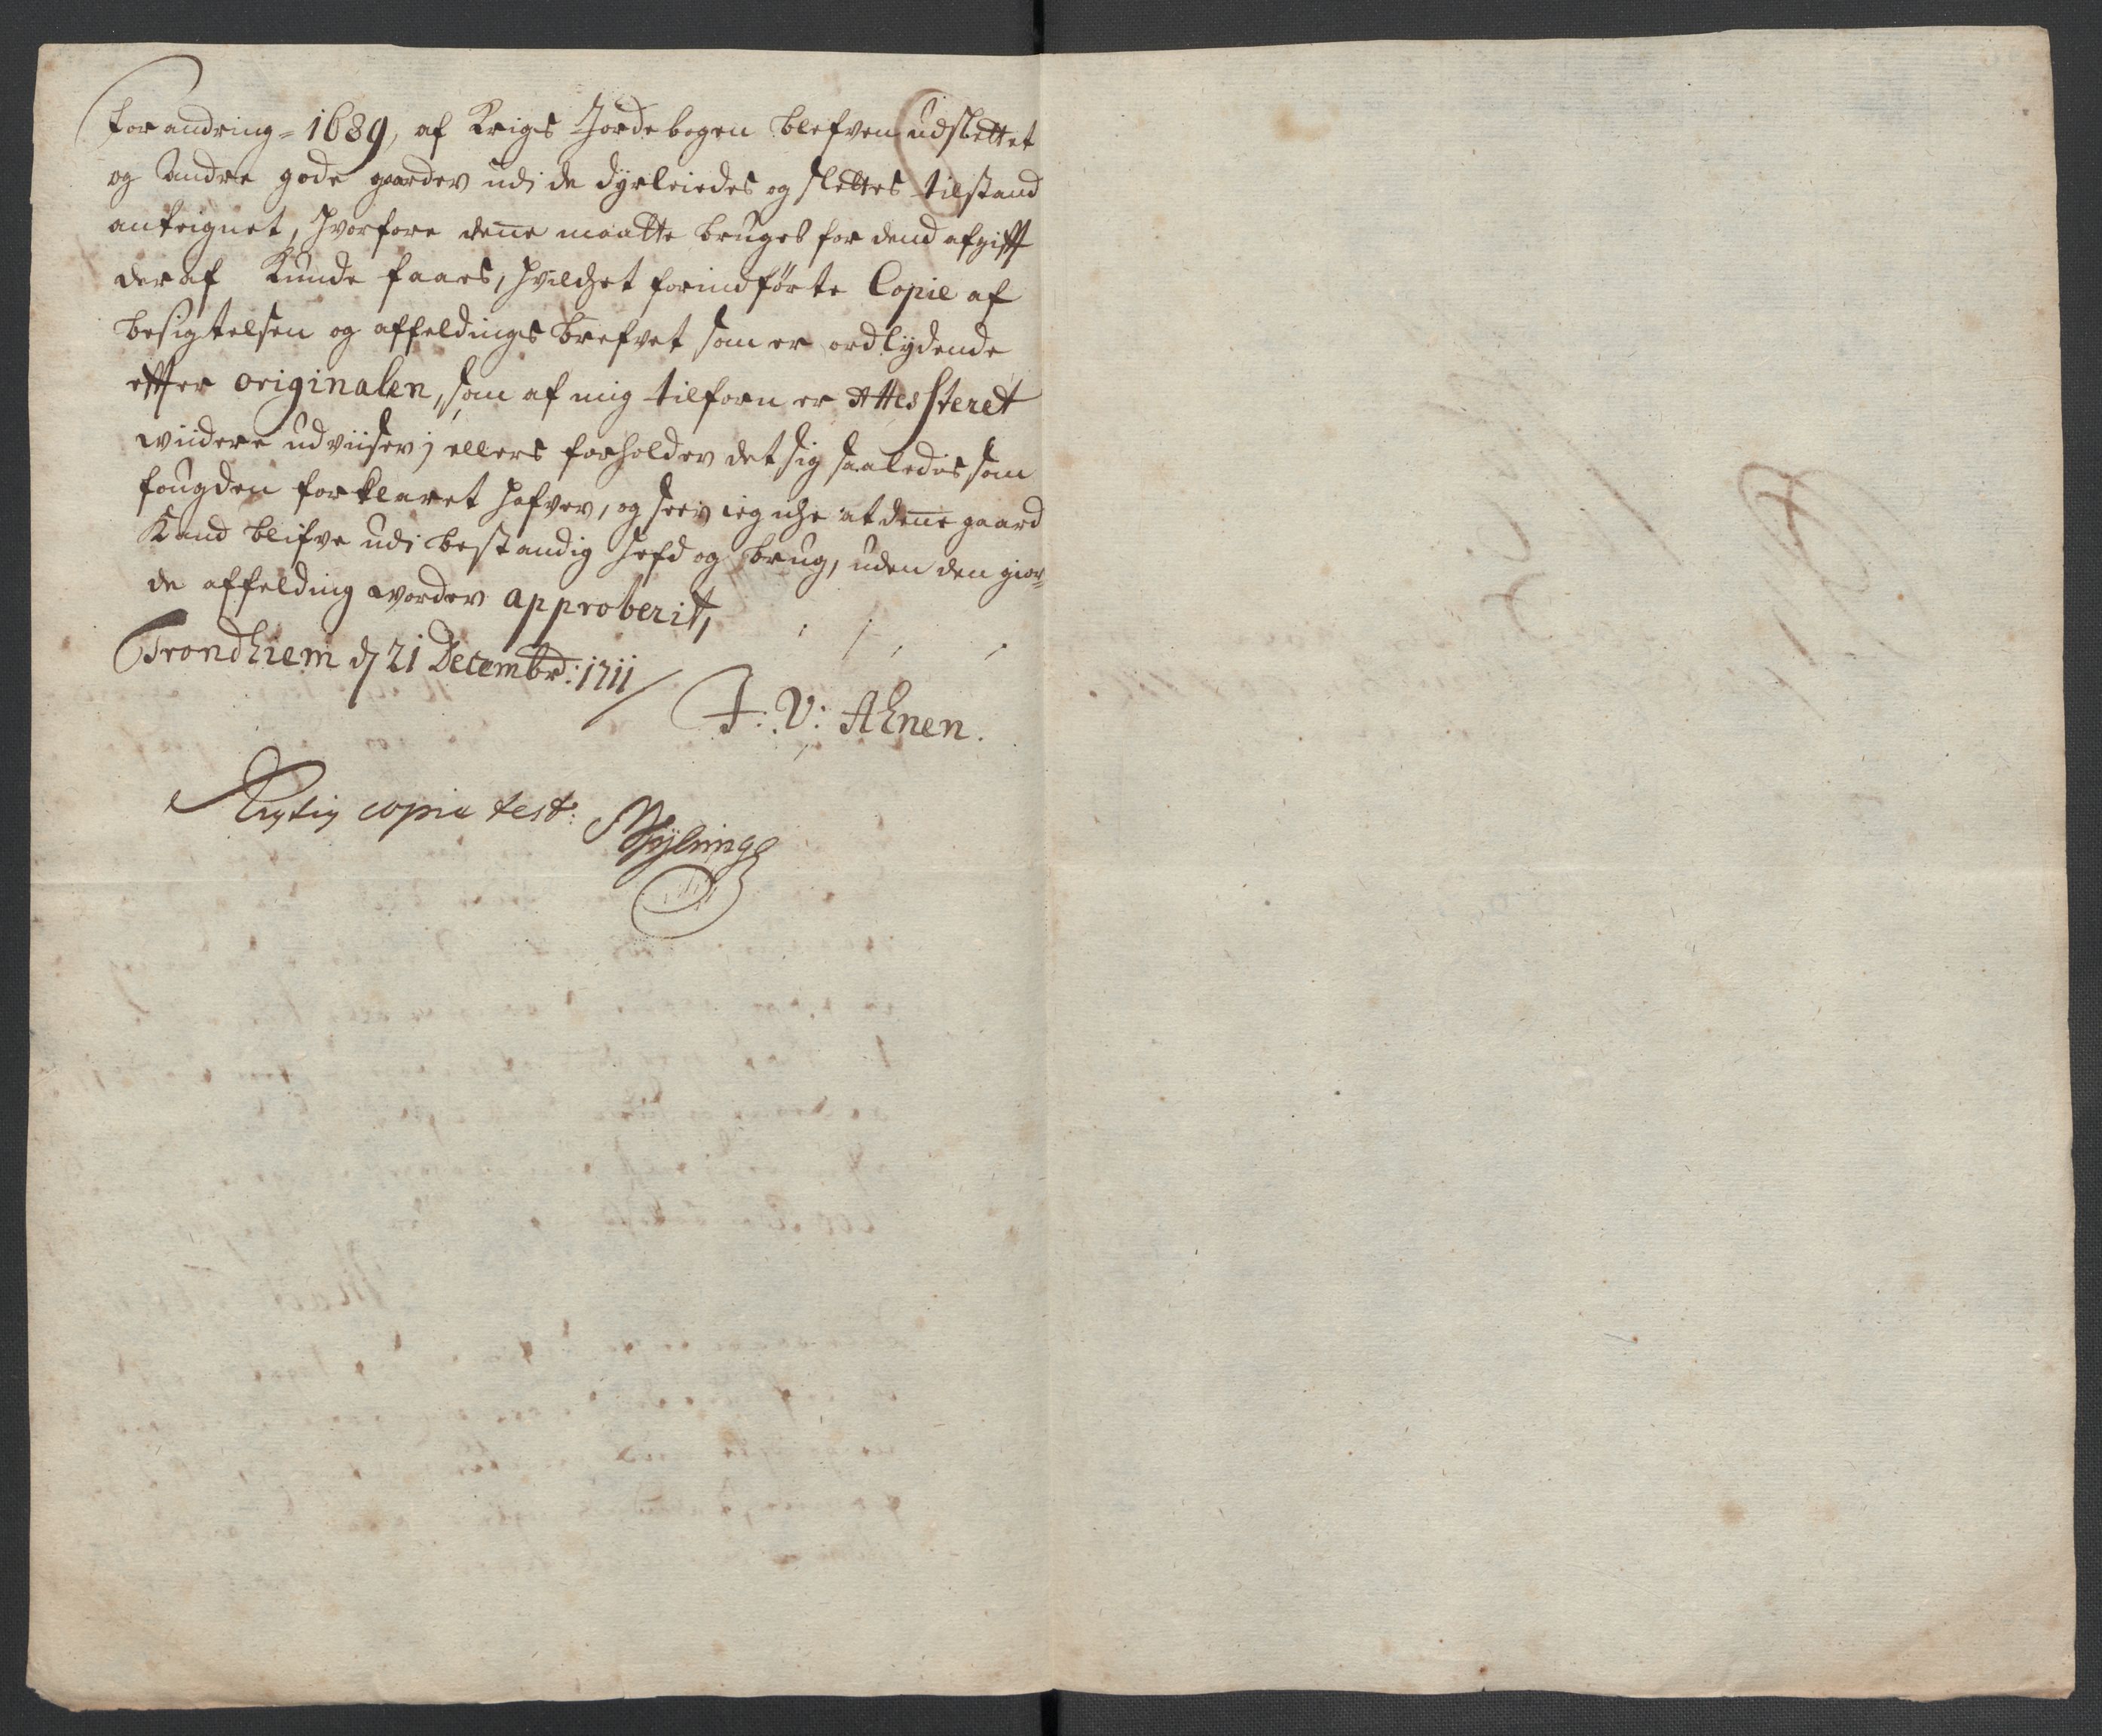 forandring 1689, af Krigs Jordebogen blefven udslettet
og andre gode gaarder udi de dyrleiedes og slettes tilstand
anteignet, hvorfore denne maatte bruges for dend afgifft
deraf Kunde faaes, hvilchet forindførte Copie af
besigtelsen og affeldings brefvet som er ordlydende
effter originalen, som af mig tilforn er Attessteret
widere udviiser; ellers forholder det sig saaledis som
fougden forklaret hafver, og seer ieg iche at denne gaard
Kand blifve udi bestandig hefd og brug, uden den gior-
de affelding worder approberit,
Trondhiem d 21 Decembr: 1711
F: V: Ahnen.
Rigtig copia test: